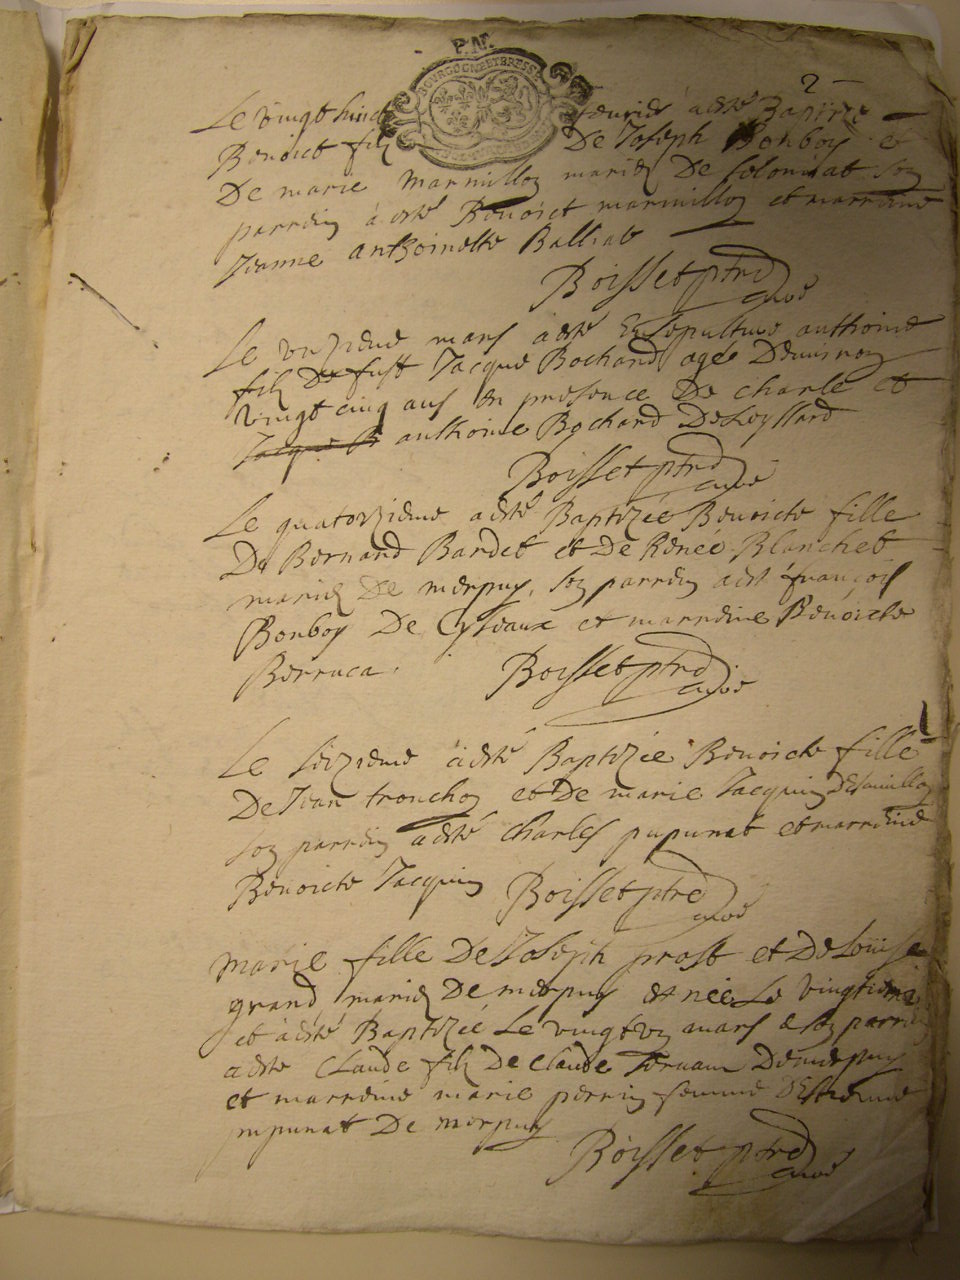 P.N.
BOURGOGNE ET BRESSE
2
Le vingt huict feurier a esté Baptizé
Benoict filz De Joseph Bonboy et
De marie marmillon mariez De Coloniat son
parrein a esté Benoict marmillon et marreine
Jeanne anthoinette Balliat
Boisset ptre
curé
Le unzieme mars a esté Ensepulturé anthoine
filz De fust Jacque Bochard agé Denviron
vingt cinq ans en presence De charle et
anthoine Bochard De
Boisset ptre
curé
Le quatorzieme a esté Baptizée Benoicte fille
De Bernard Bardet et De Renée Blanchet
mariez De merpuy, son parrein a esté françois
Bonboy De Cyseaux et marreine Benoicte
Berruca.
Boisset ptre
curé
Le seizieme a esté Baptizée Benoicte fille
De Jean tronchon et De marie Jacquin
son parrein a esté charles pupunat et marreine
Benoicte Jacquin Boisset ptre
curé
Marie fille De Joseph prost et De Louise
grand mariez De merpuy est née Le vingtieme
et a esté Baptizée Le vingt un mars son parrein
a esté Claude filz De Claude De merpuy
et marreine marie perrin femme D'Estienne
pupunat De merpuy
Boisset ptre
curé